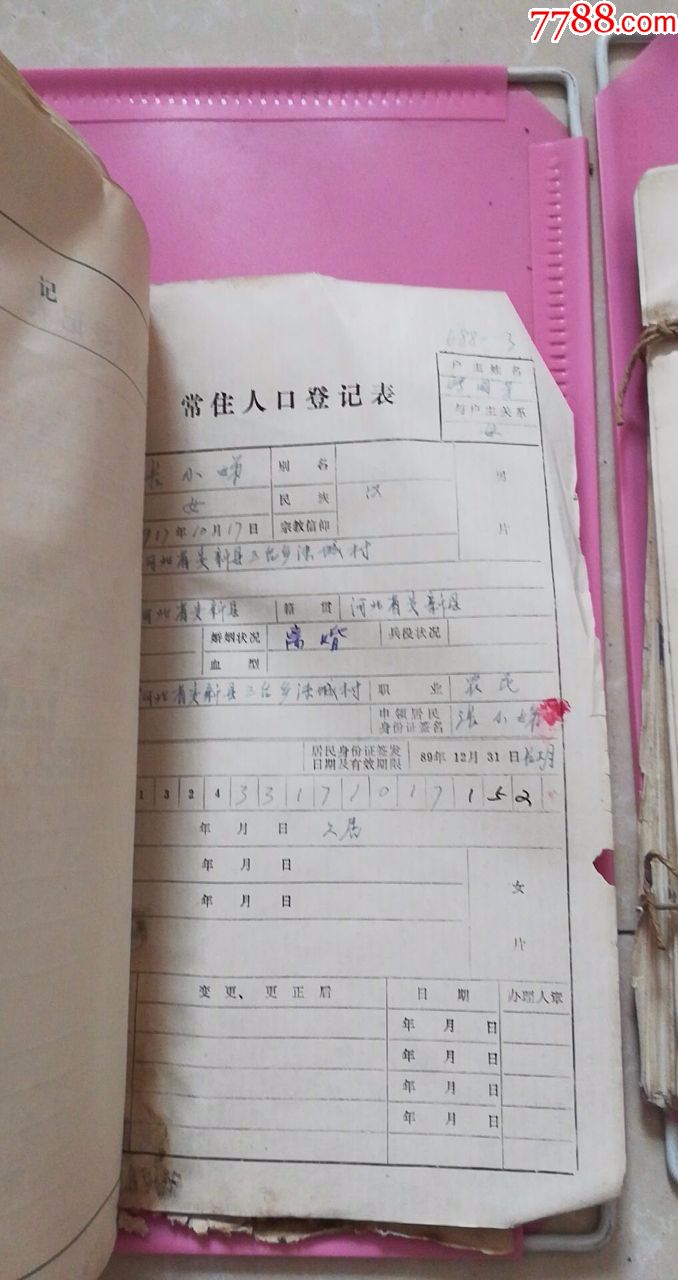 7788.com
记
688-3
户主姓名
与户主关系
母
常住人口登记表
小娣 别名
女 民族 汉
917年10月17日 宗教信仰
男
片
河北省安新县三台乡涞城村
河北省安新县 籍贯 河北省安新县
婚姻状况 离婚 兵役状况
血型
河北省安新县三台乡涞城村 职业 农民
申领居民身份证签名 张小娣
居民身份证签发日期及有效期限 89年12月31日长期
1 3 2 4 3 3 1 7 1 0 1 7 1 5 2
年 月 日 久居
年 月 日
年 月 日
女
片
变更、更正后 日期 办理人章
年 月 日
年 月 日
年 月 日
年 月 日